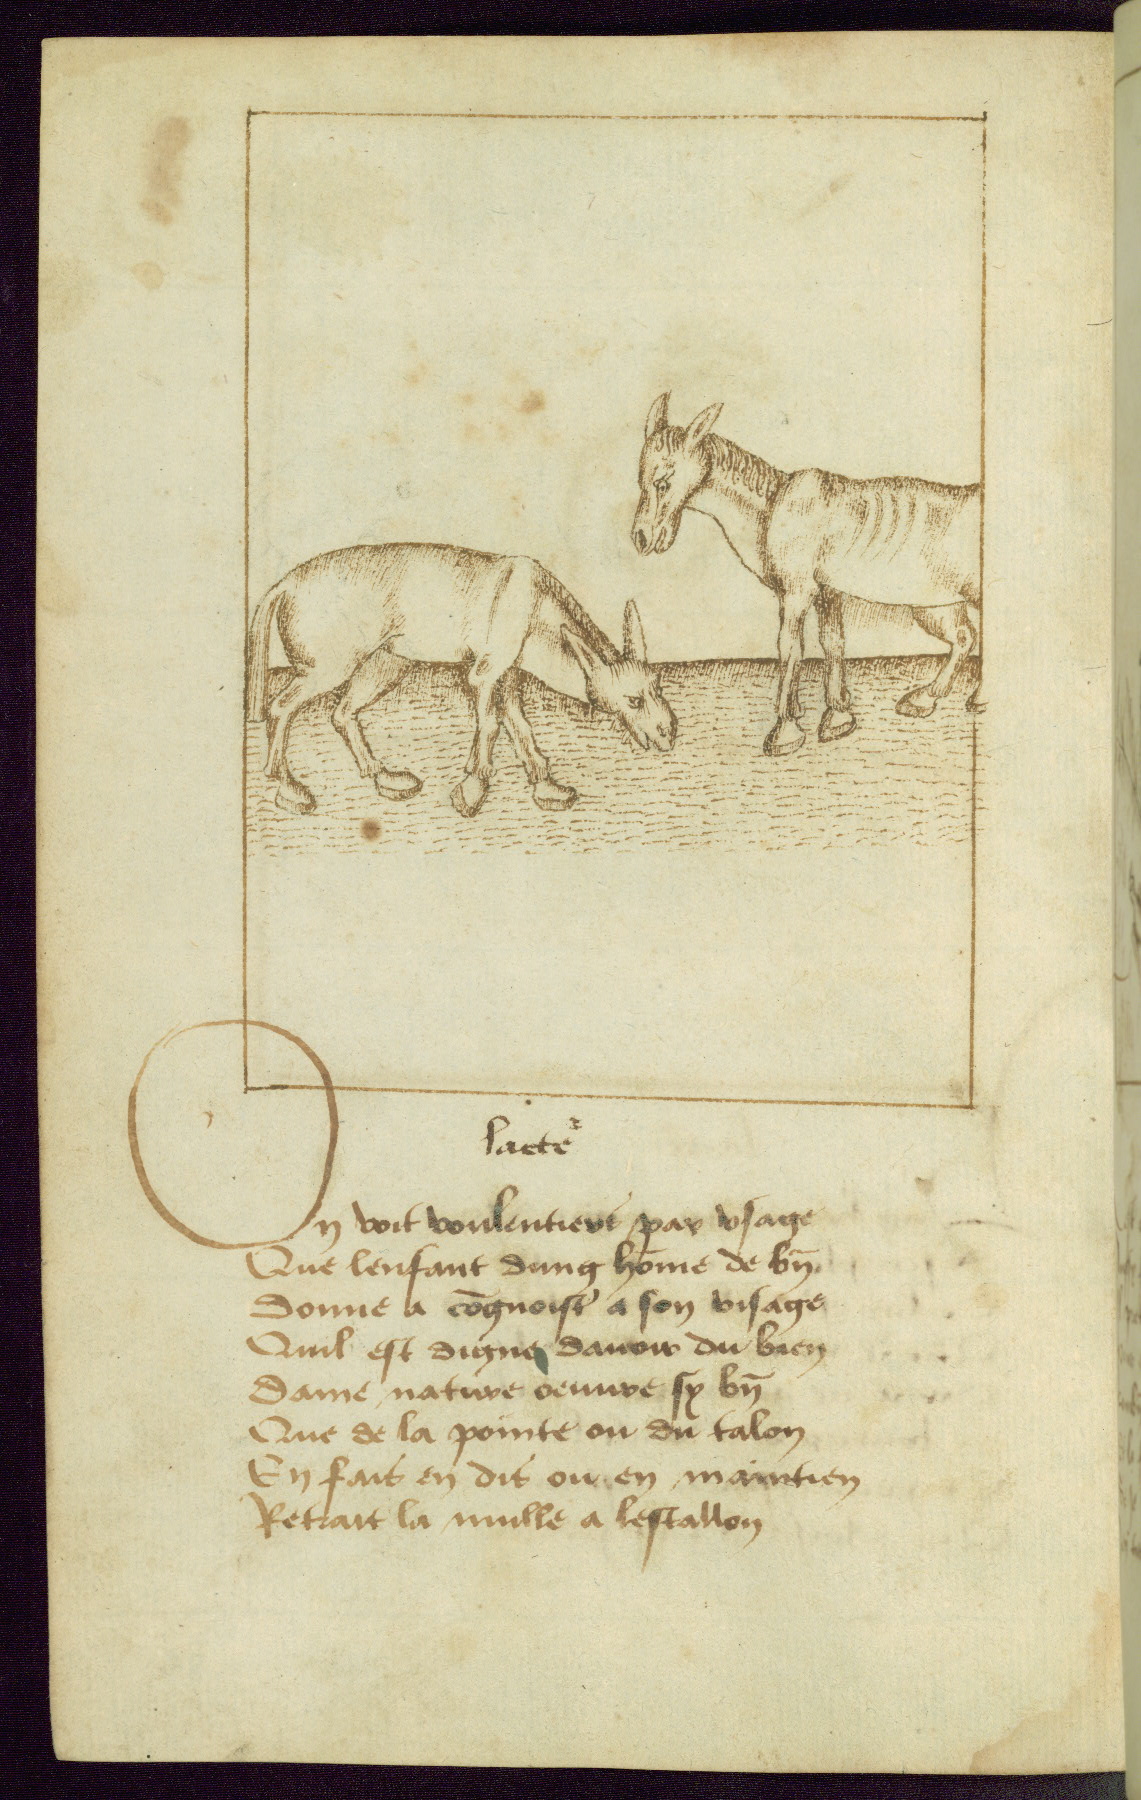 lacteᷣ
On voit voulentiers par vsage
Que lenfant dung hōme de bn̄
Donne a cōgnoistr̄ a son visage
Quil est digne dauoir du bien
Dame nature oeuure sy bn̄
Que de la pointe ou du talon
En fais en dis ou en maintien
Retrait la mulle a lestallon